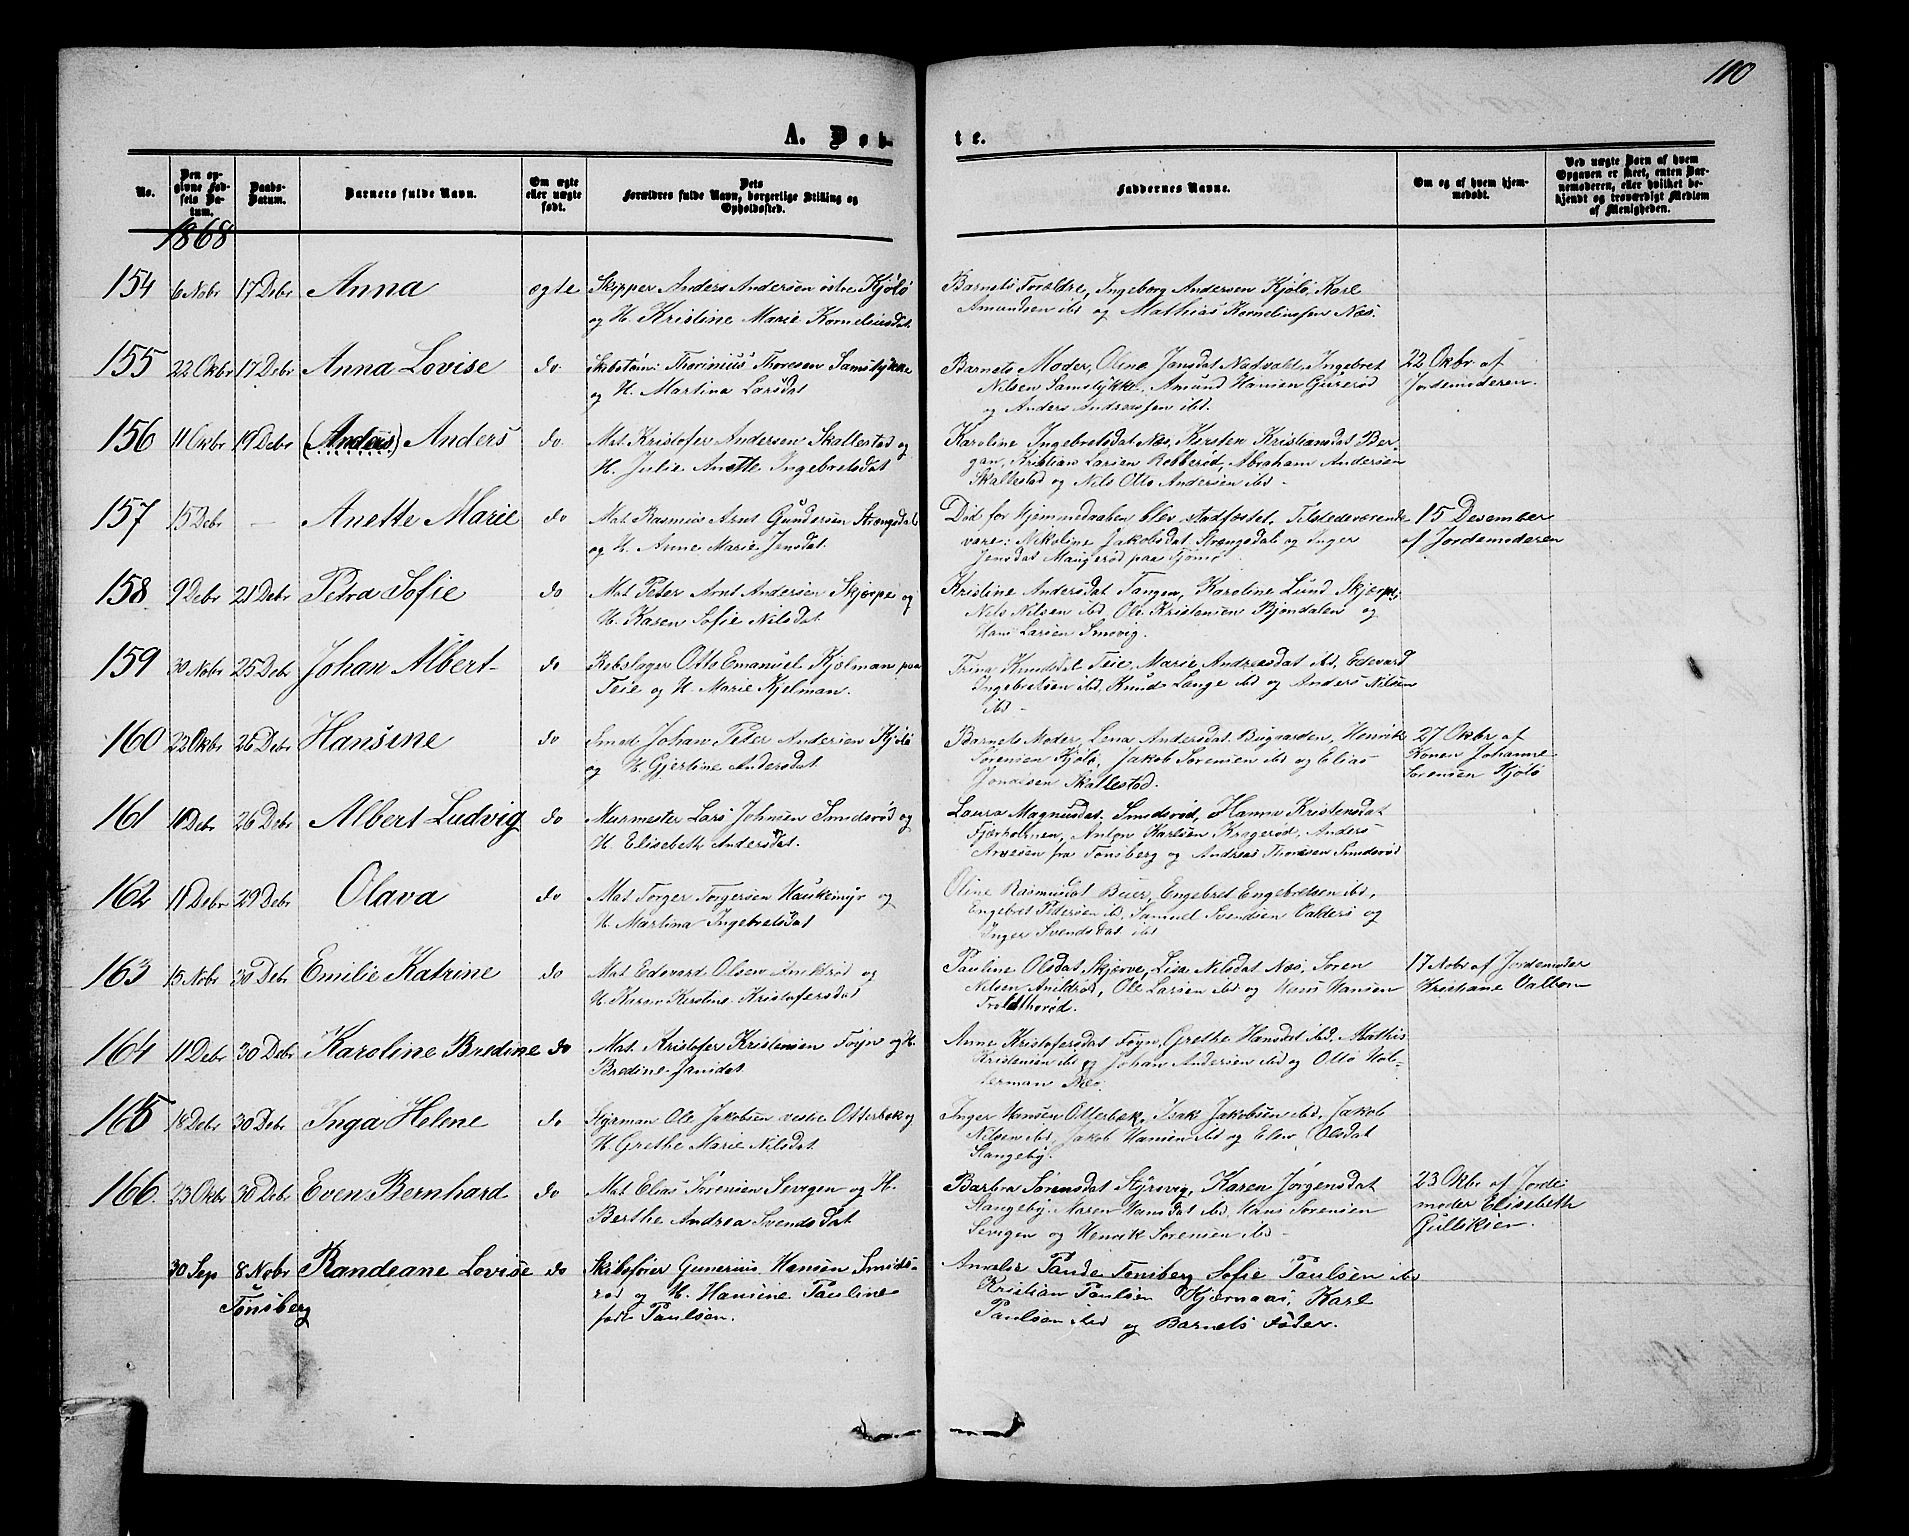 110
A. Døb-
te.
No.
Den op-
givne Fød-
sels Da-
tum.
Daabs-
Datum.
Barnets fulde Navn.
Om ægte
eller uægte
født.
Dets
Forældres fulde Navn, borgerlige Stilling og
Opholdssted.
Faddernes Navne.
Om og af hvem hjem-
medøbt.
Ved uægte Børn af hvem
Opgaven er skeet, enten Bar-
nemoderen, eller hvilket be-
kjendt og troværdigt Medlem
af Menigheden.
1868
154 6 Nobr 17 Debr Anna ægte Skipper Anders Andersen østre Kjølø
og H. Kristine Marie Kornelsdat
Barnets Forældre, Ingeborg Andersen Kjølø, Karl
Amundsen ibd og Mathias Kornelinsen Næs.
155 22 Okbr 17 Debr Anna Lovise do. Skbstøm: Thorinius Thoresen Samstykke
og H. Martina Larsdat
Barnets Moder, Oline Jansdat Nadvalt, Ingebret
Nilsen Samstykke, Amund Hansen
og Anders Andreassen ibd.
22 Okbr af
Jordemoderen.
156 11 Okbr 19 Debr (Anders) Anders do Mat. Kristofer Andersen Skallestad og
H. Julie Anette Ingebretsdat
Karoline Ingebretsdat Næs, Kirsten Kristiansdat Ber-
gan, Kristian Larsen Robberød, Abraham Andersen
Skallestad og Nils Otto Andersen ibd -
157 15 Debr - Anette Marie do Mat. Rasmus Arnt Gundersen Strængsdal
og H. Anne Marie Jensdat.
Død før Hjemmedaaben blev stadfæstet. Tilstedeværende
vare: Nikoline Jakobsdat Strængsdal og Inger
Jensdat Mangerød paa Tjømø
15 Desember
af Jordemoderen
158 9 Debr 21 Debr Petra Sofie do Mat Peter Arnt Andersen Skjærpe og
H. Karen Sofie Nilsdat
Kristine Andersdat Tangen, Karoline Lund Skjærpe,
Nils Nilsen ibd, Ole Kristensen Bjøndalen og
Hans Larsen Smevig.
159 30 Nobr 25 Debr Johan Albert do Rebslager Otto Emanuel Kjølman paa
Teie og H. Marie Kjelman.
Trina Knudsdat Teie, Marie Andreasdat ibd, Edevard
Ingebretsen ibd, Knud Lange ibd og Anders Nilsen
ibd -
160 22 Okbr 26 Debr Hansine do Smed Johan Peter Andersen Kjølø
og H. Gjertine Andersdat
Barnets Moder, Lena Andersdat Bugaarden, Henrik
Sørensen Kjølø, Jakob Sørensen ibd og Elias
Jonasen Skallestad.
27 Okbr af
Konen Johanne
Sørensen Kjølø
161 10 Debr 26 Debr Albert Ludvig do Murmester Lars Johnsen Smidsrød og
H. Elisebeth Andersdat.
Laura Magnusdat. Smidsrød, Hanna Kristensdat
Fjærholmen, Anton Karlsen Kragerød, Anders
Arnesen fra Tønsberg og Andreas Thoresen Smidsrød
162 11 Debr 29 Debr Olava do Mat Torger Torgersen Haukemyr og
H. Martina Ingebretsdat
Oline Rasmusdat Buer, Engebret Engebretsen ibd,
Engebret Pedersen ibd, Samuel Svendsen Valders og
Inger Svendsdat ibd
163 15 Nobr 30 Debr Emilie Katrine do Mat Edevard Olsen Anildrød og
H. Karen Kirstine Kristofersdat
Pauline Olsdat Skjerve, Lisa Nilsdat Næs, Søren
Nilsen Anildrød, Ole Larsen ibd og Hans Hansen
17 Nobr af Jordemoder
Kristiane Valbo-
164 11 Debr 30 Debr Karoline Bredine do Mat. Kristofer Kristensen Føyn og H.
Bredine Jansdat
Anne Kristofersdat Føyn, Grethe Hansdat ibd, Mathis
Kristensen ibd og Johan Andersen ibd og Otto Hol-
terman Næs.
165 18 Debr 30 Debr Inga Helene do Styrman Ole Jakobsen vestre Otterbæk og
H. Grethe Marie Nilsdat
Inger Hansen Otterbæk, Isak Jakobsen ibd, Jakob
Nilsen ibd, Jakob Hansen ibd og Elen Olsdat
Stangeby.
166. 23 Okbr 30 Debr Even Bernhard do Mat Elias Sørensen Sevigen og H.
Berthe Andrea Svendsdat
Barbra Sørensdat Styrsvig, Karen Jørgensdat
Stangeby, Maren Hansdat ibd, Hans Sørensen
Sevigen og Henrik Sørensen ibd -
23 Okbr af Jorde-
moder Elisebeth
Gulliksen.
30 Sep 8 Nobr Randeane Lovise do Skibsfører Gunerius Hansen Smids-
Tønsberg
rød og H. Hansine Pauline
født Paulsen.
Amalie Pande Tønsberg Sofie Paulsen ibd
Kristian Paulsen Kjærnaas, Karl
Paulsen ibd og Barnets Fader.